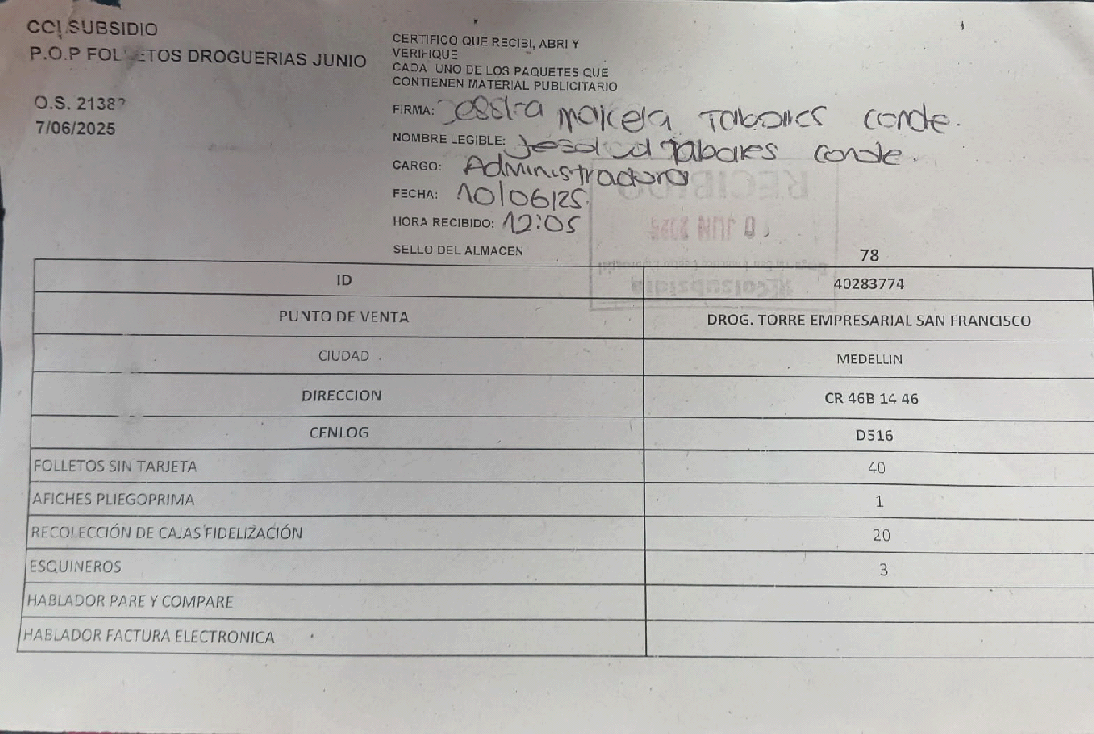 CCL SUBSIDIO
P.O.P FOLLETOS DROGUERIAS JUNIO
O.S. 2138?
7/06/2025
CERTIFICO QUE RECIBI, ABRI Y
VERIFIQUE
CADA UNO DE LOS PAQUETES QUE
CONTIENEN MATERIAL PUBLICITARIO
FIRMA: Jessica Marcela Tabares Conde.
NOMBRE LEGIBLE: Jessica Tabares Conde.
CARGO: Administradora
FECHA: 10/06/25.
HORA RECIBIDO: 12:05
SELLO DEL ALMACEN
RECIBIDO
JUN 2025
Colsubsidio
78
ID 40283774
PUNTO DE VENTA DROG. TORRE EMPRESARIAL SAN FRANCISCO
CIUDAD MEDELLIN
DIRECCION CR 46B 14 46
CENLOG D516
FOLLETOS SIN TARJETA 40
AFICHES PLIEGOPRIMA 1
RECOLECCIÓN DE CAJAS FIDELIZACIÓN 20
ESQUINEROS 3
HABLADOR PARE Y COMPARE
HABLADOR FACTURA ELECTRONICA